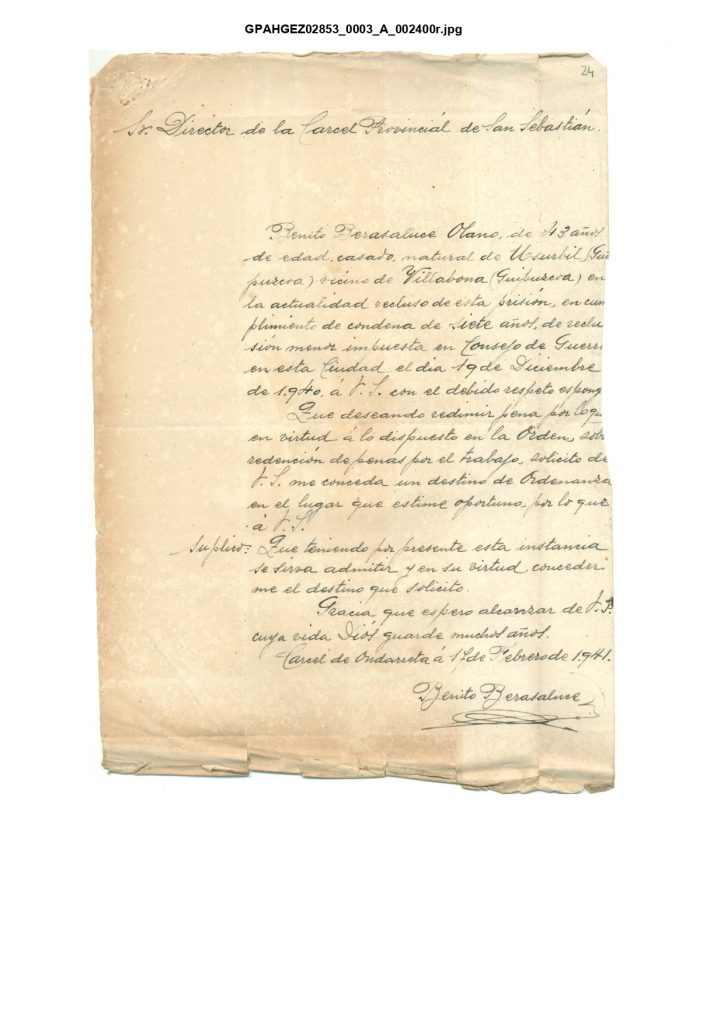 GPAHGEZ02853_0003_A_002400r.jpg
24
Sr. Director de la Carcel Provinciál de San Sebastián.
Benito Berasaluce Olano, de 43 años
de edad, casado, natural de Usurbil, (Gui
puzcoa) vicino de Villabona (Guibuzcoa) en
la actualidad recluso de esta prisión, en cum
plimiento de condena de siete años, de reclu
sión menor impuesta en Consejo de Guerra
en esta Ciudad el dia 19 de Diciembre
de 1.940, á V.S. con el debido respeto espong
Que deseando redimir pena por lo qu
en virtud á lo dispuesto en la Orden, sobr
redención de penas por el trabajo, solicito de
V.S. me conceda un destino de Ordenanza
en el lugar que estime oportuno, por lo que
á V.S.
Suplico: Que teniendo por presente esta instancia
se sirva admitir y en su virtud conceder
me el destino que solicito.
Gracia que espero alcanzar de V.S.
cuya vida Diós guarde muchos años.
Carcel de Ondarreta á de Febrero de 1.941.
Benito Berasaluce